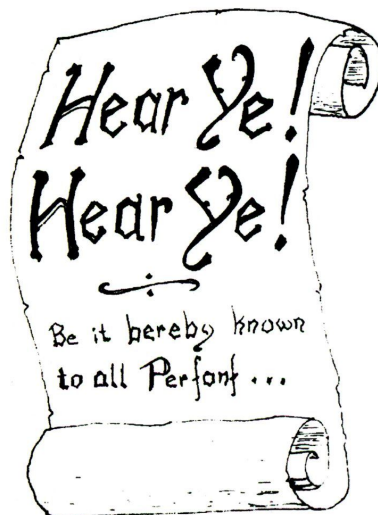 Hear Ye!
Hear Ye!
Be it hereby known
to all Perfonf ...